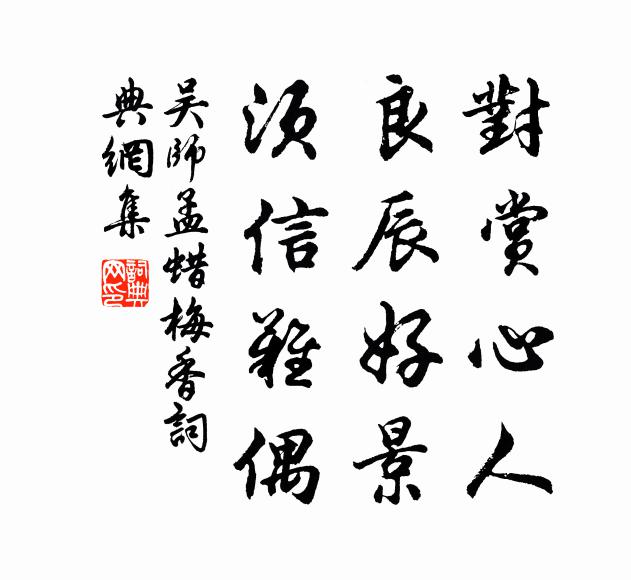 對賞心人
良辰好景
須信難偶
吳師孟蜡梅香詞
典網集
詞典
网印